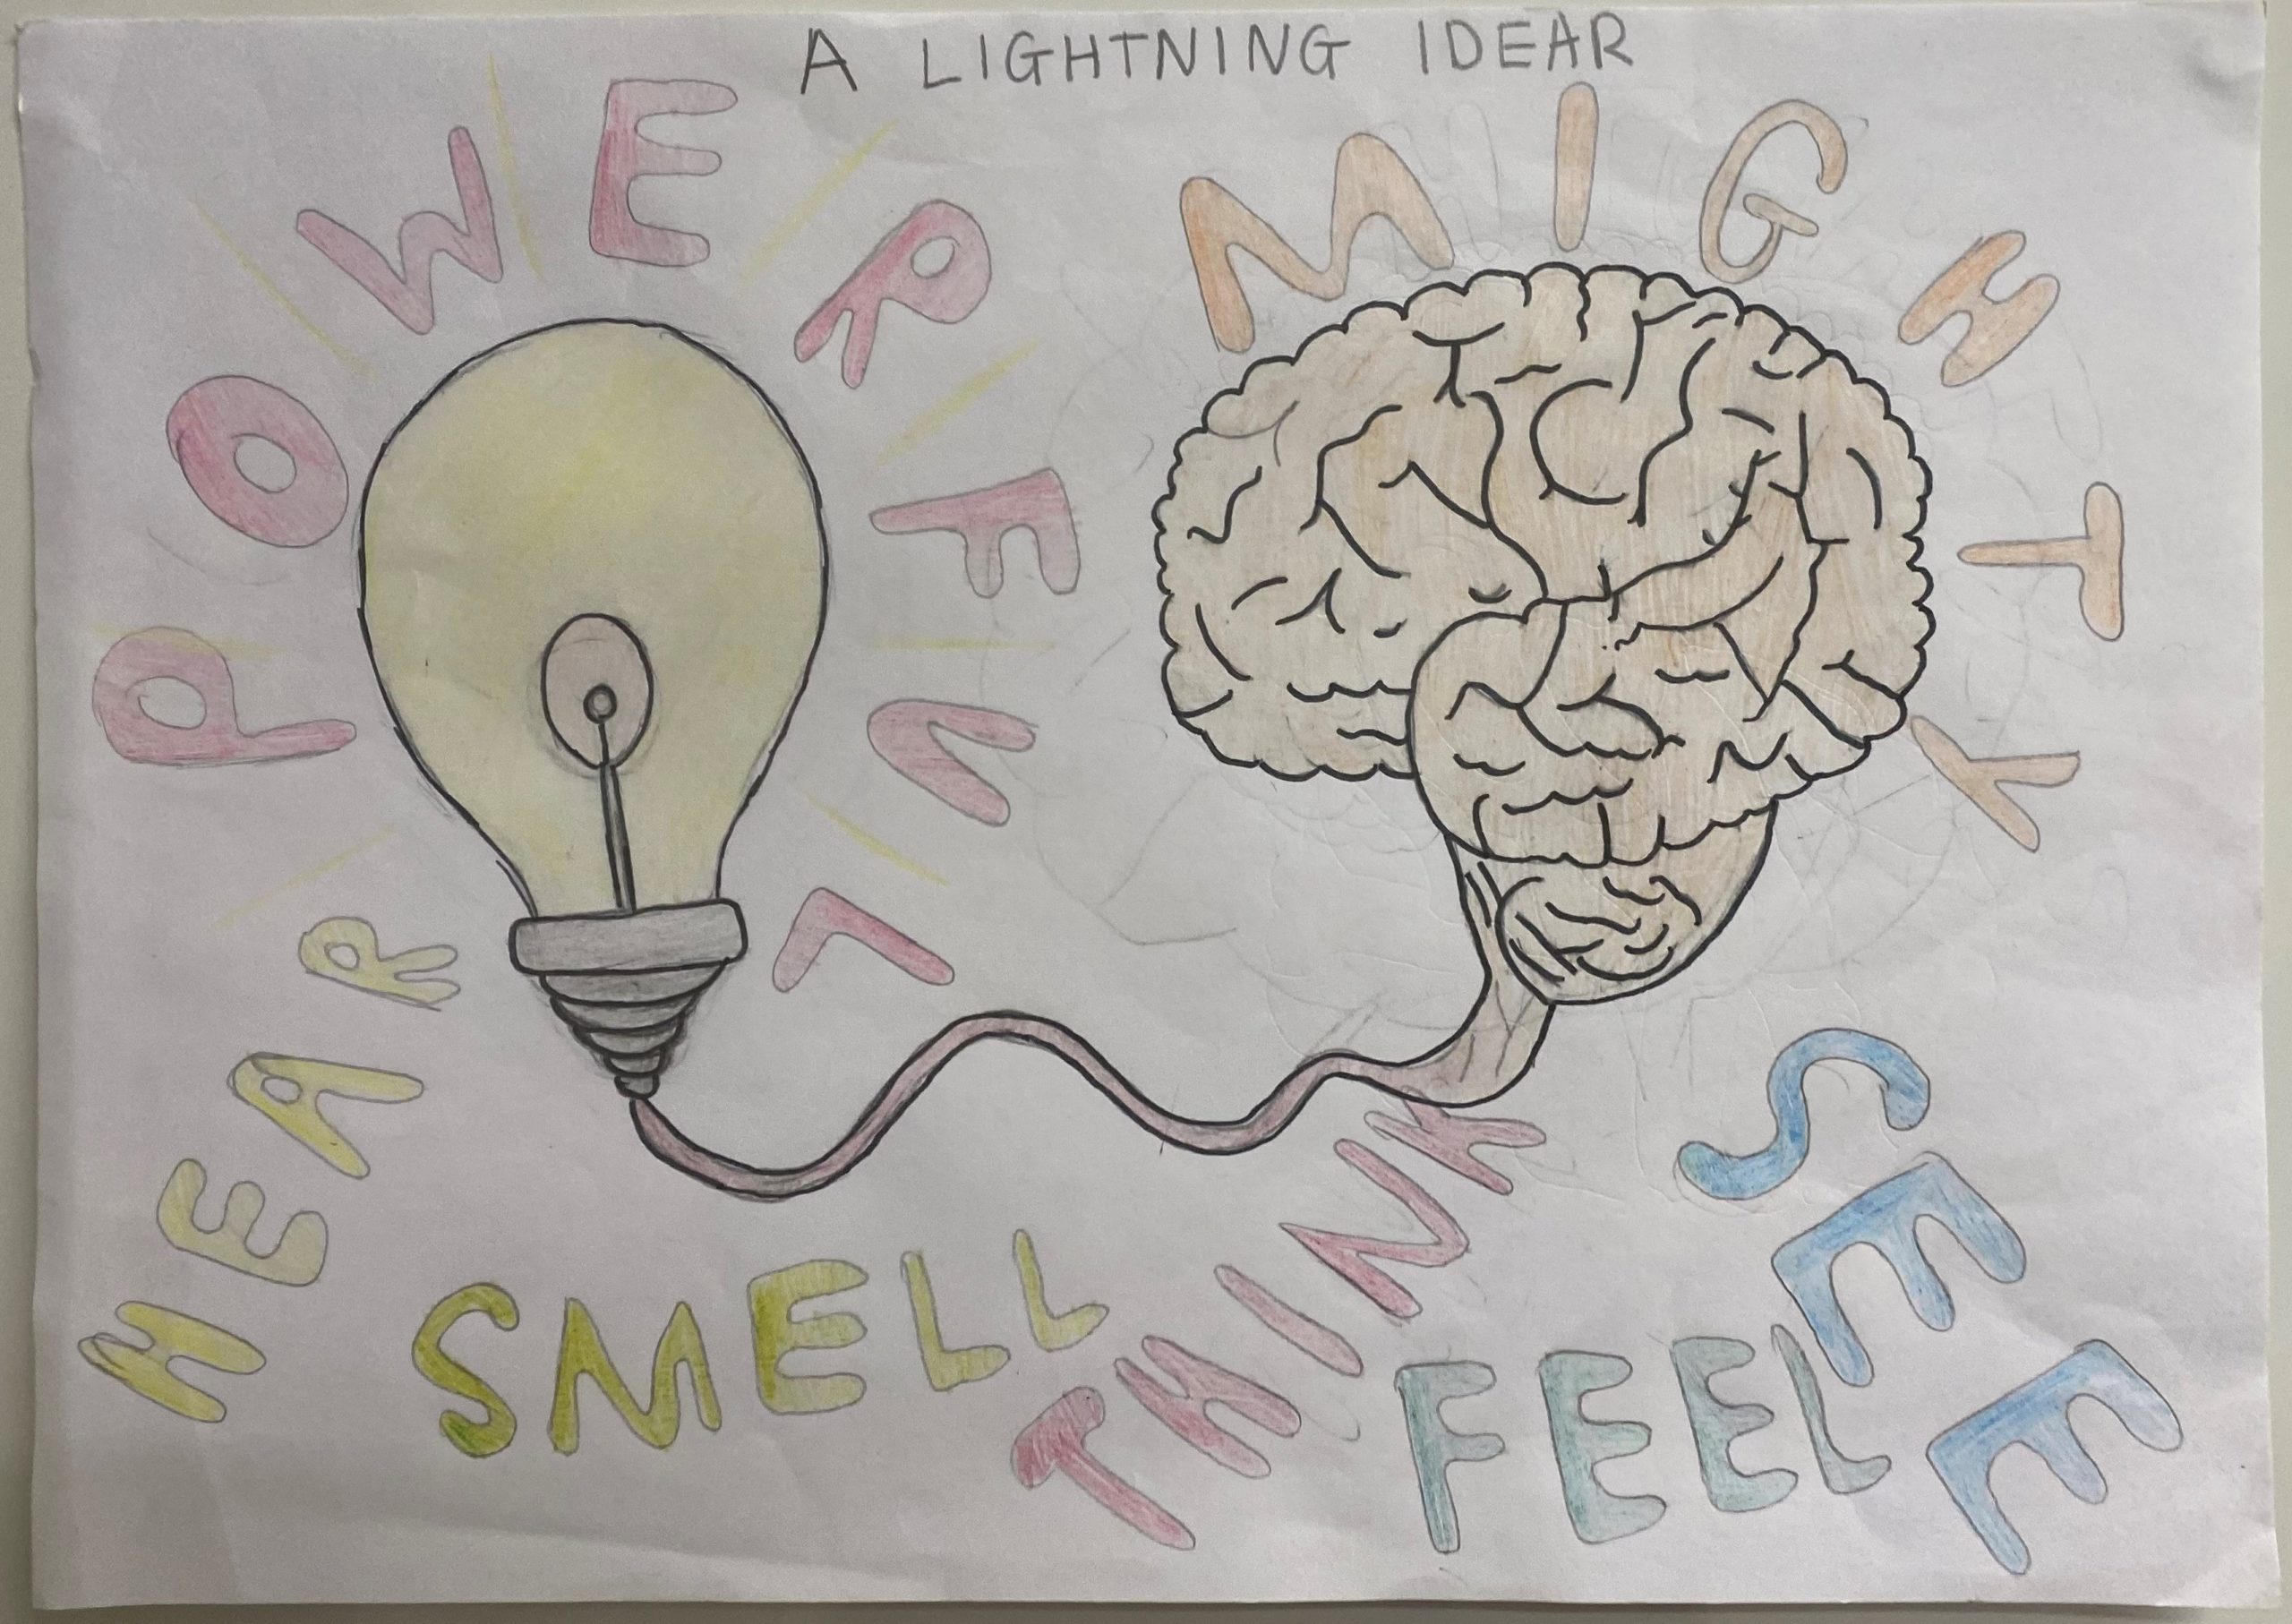 A LIGHTNING IDEAR
POWERFUL
MIGHTY
HEAR
SMELL
THINK
FEEL
SEE